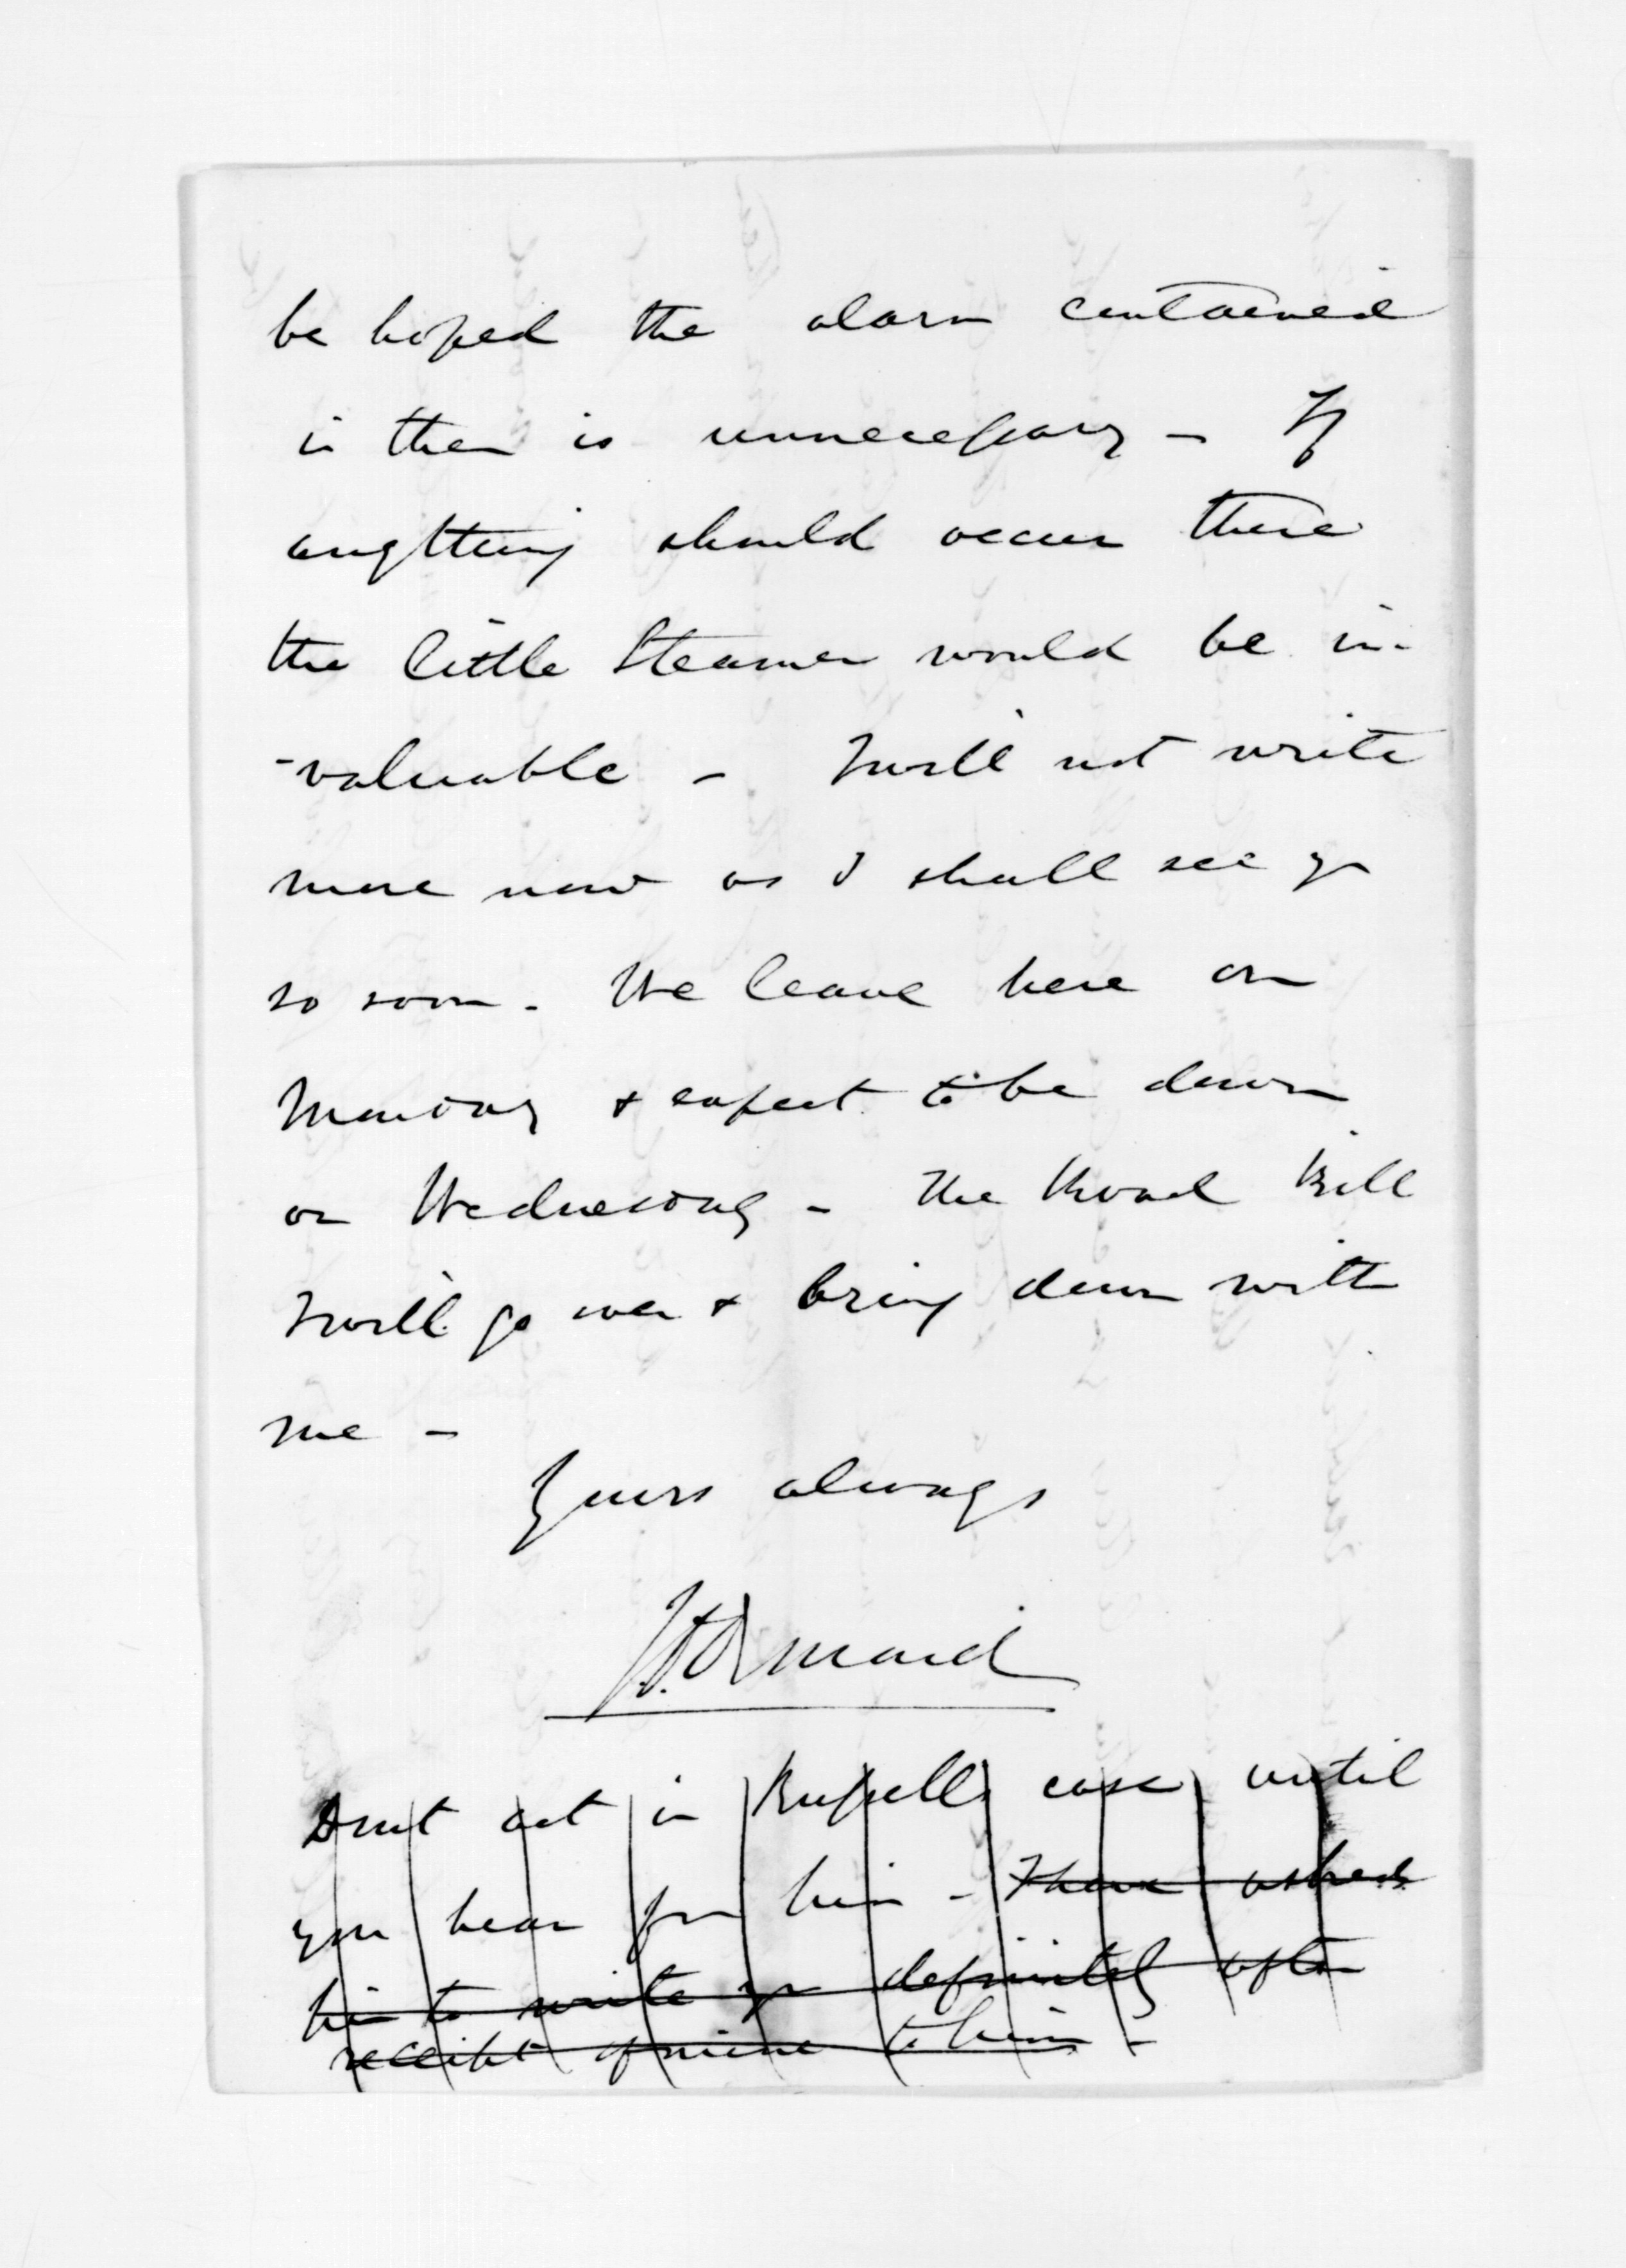 be hoped the alarm contained
in them is unnecessary - If
anything should occur there
the little Steamer would be in-
-valuable - I will not write
more now as I shall see yr
so soon. We leave here on
Monday & expect to be down
on Wednesday - The Road Bill
I will go over & bring down with
me -
Yours always
J. D. Ormond
Dont act in Russells case until
you hear fm him - I have asked
him to write yr definitely after
receipt of mine to him -